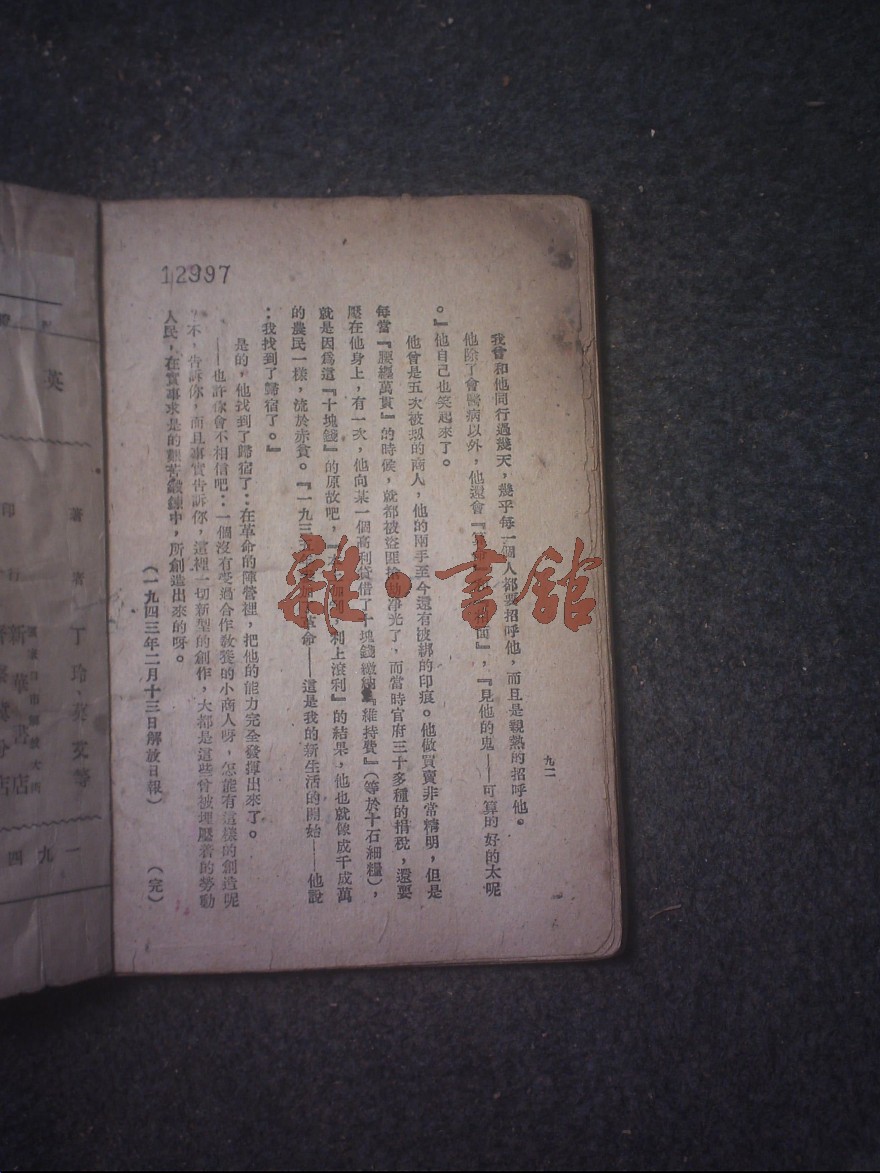 九二
我曾和他同行過幾天，幾乎每一個人都要招呼他，而且是親熱的招呼他。
他除了會醫病以外，他還會『 』，『見他的鬼——可算的好的太呢
。』他自己也笑起來了。
他曾是五次被刼的商人，他的兩手至今還有被綁的印痕。他做買賣非常精明，但是
每當『腰纏萬貫』的時候，就都被盜匪搶刼凈光了，而當時官府三十多種的捐稅，還要
壓在他身上，有一次，他向某一個高利貸借了十塊錢繳納『維持費』（等於十石細糧），
就是因爲這『十塊錢』的原故吧， 利上滾利』的結果，他也就像成千成萬
的農民一樣，流於赤貧。『一九三 革命——這是我的新生活的開始——他說
：我找到了歸宿了。』
是的，他找到了歸宿了：在革命的陣營裡，把他的能力完全發揮出來了。
——也許你會不相信吧：一個沒有受過合作教養的小商人呀，怎能有這樣的創造呢
不，告訴你，而且事實告訴你，這裡一切新型的創作，大都是這些曾被埋壓着的勞動
人民，在實事求是的艱苦鍛鍊中，所創造出來的呀。
（一九四三年二月十三日解放日報） （完）
12997
雜·書館
英
著 者 丁玲、 等
印 行 新華書店
分店
一九四